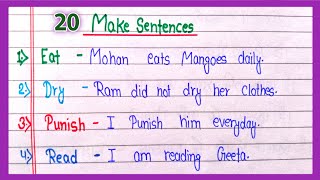 20 Make Sentences
1) Eat - Mohan eats Mangoes daily.
2) Dry - Ram did not dry her clothes.
3) Punish - I Punish him everyday.
4) Read - I am reading Geeta.